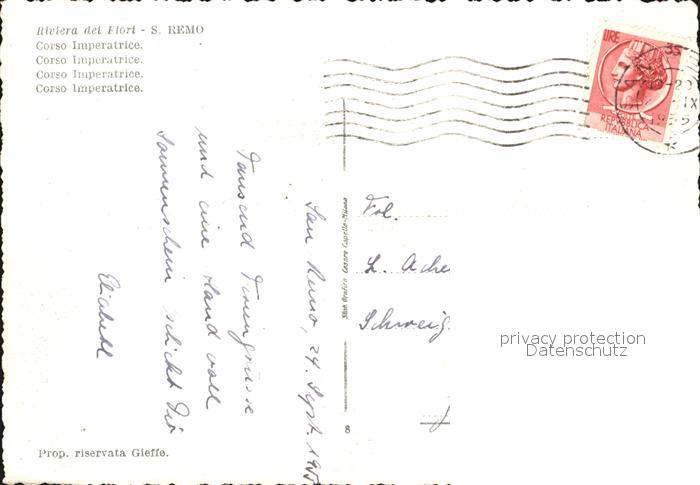 Riviera dei Fiori - S. REMO
Corso Imperatrice.
Corso Imperatrice.
Corso Imperatrice.
Corso Imperatrice.
LIRE 35
REPVBBLICA
ITALIANA
San Remo, 24. Sept. 195
Tausend
und eine Hand voll
Sonnenschein schickt Dir
Frl.
L. Ache
Schweig.
privacy protection
Datenschutz
8
Prop. riservata Gieffe.